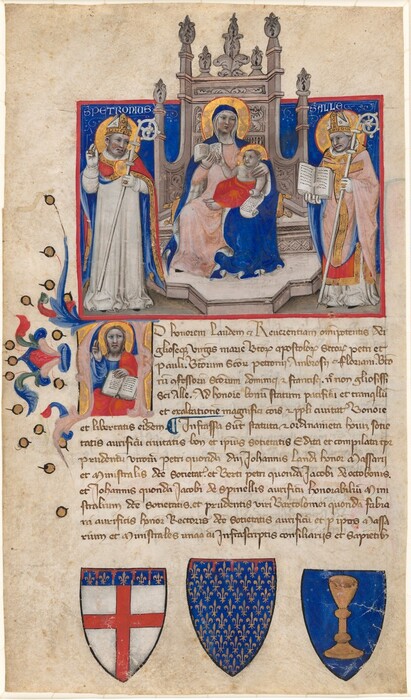 S PETRONIUS
S ALLE
D honorem Laudem & Reuerentiam omnipotentis Dei
gliose virginis marie Btorum apostolorum Sctorum petri et
pauli. Btorum Sctorum petronij Ambrosij & floriani. Bto
rum ofessorum Sctorum dominici & francisi
Sci Alle. Ad honorem bonum statum pacificum et tranquillum
et exaltationem magnifici cois & ppli ciuitatis Bononie
et libertatis eiusdem Infrascpta sunt statuta & ordinamenta houm socie
tatis aurificum ciuitatis bon et ipius societatis Edita et compilata per
prudentes uiros petrum quondam dni Johannis Landi honor Massarium
et Ministralem dce societatis et petri quondam Jacobi
et Johannis quondam Jacobi de Spinellis aurificum honorabilium Mini
stralium dce Societatis et prudentis uiri Bartolomei quondam
aurificis honor Rectoris dce societatis aurificum et per ipos Massa
rium et Ministrales una cum Infrascriptis consiliarijs et sapientibus